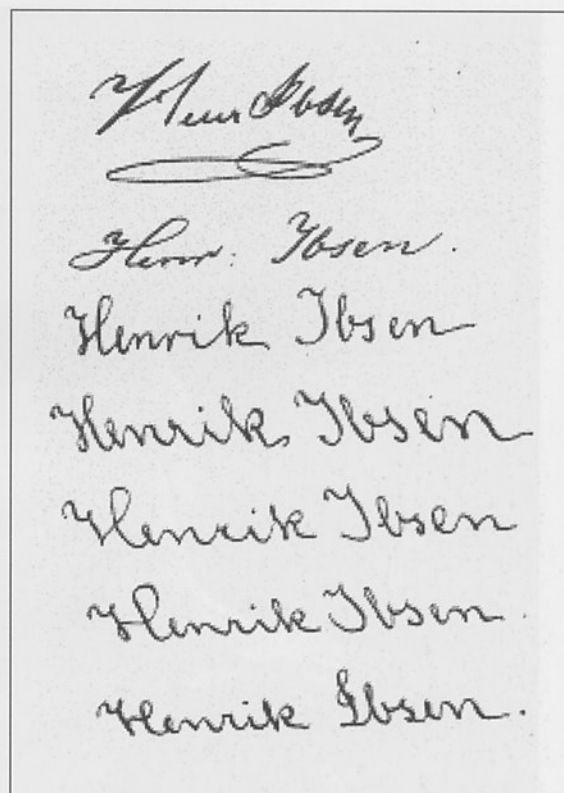 Henr Ibsen
Henr: Ibsen.
Henrik Ibsen
Henrik Ibsen
Henrik Ibsen
Henrik Ibsen.
Henrik Ibsen.